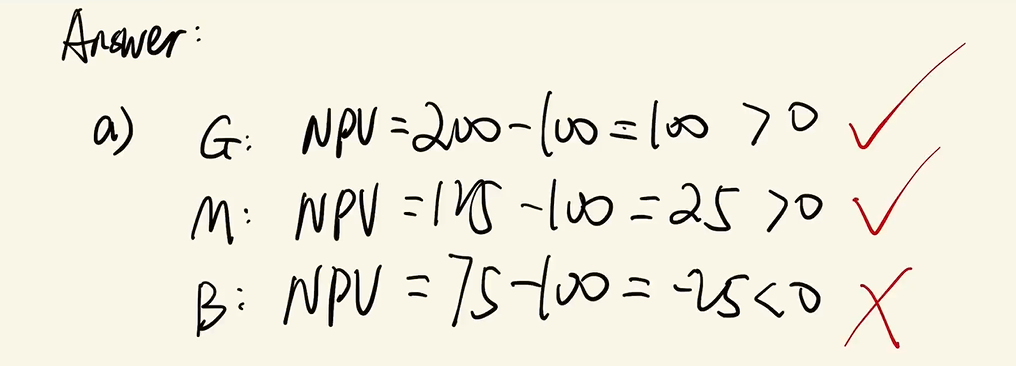 Answer:
a) G: NPV = 200 - 100 = 100 > 0 ✓
M: NPV = 125 - 100 = 25 > 0 ✓
B: NPV = 75 - 100 = -25 < 0 ✗